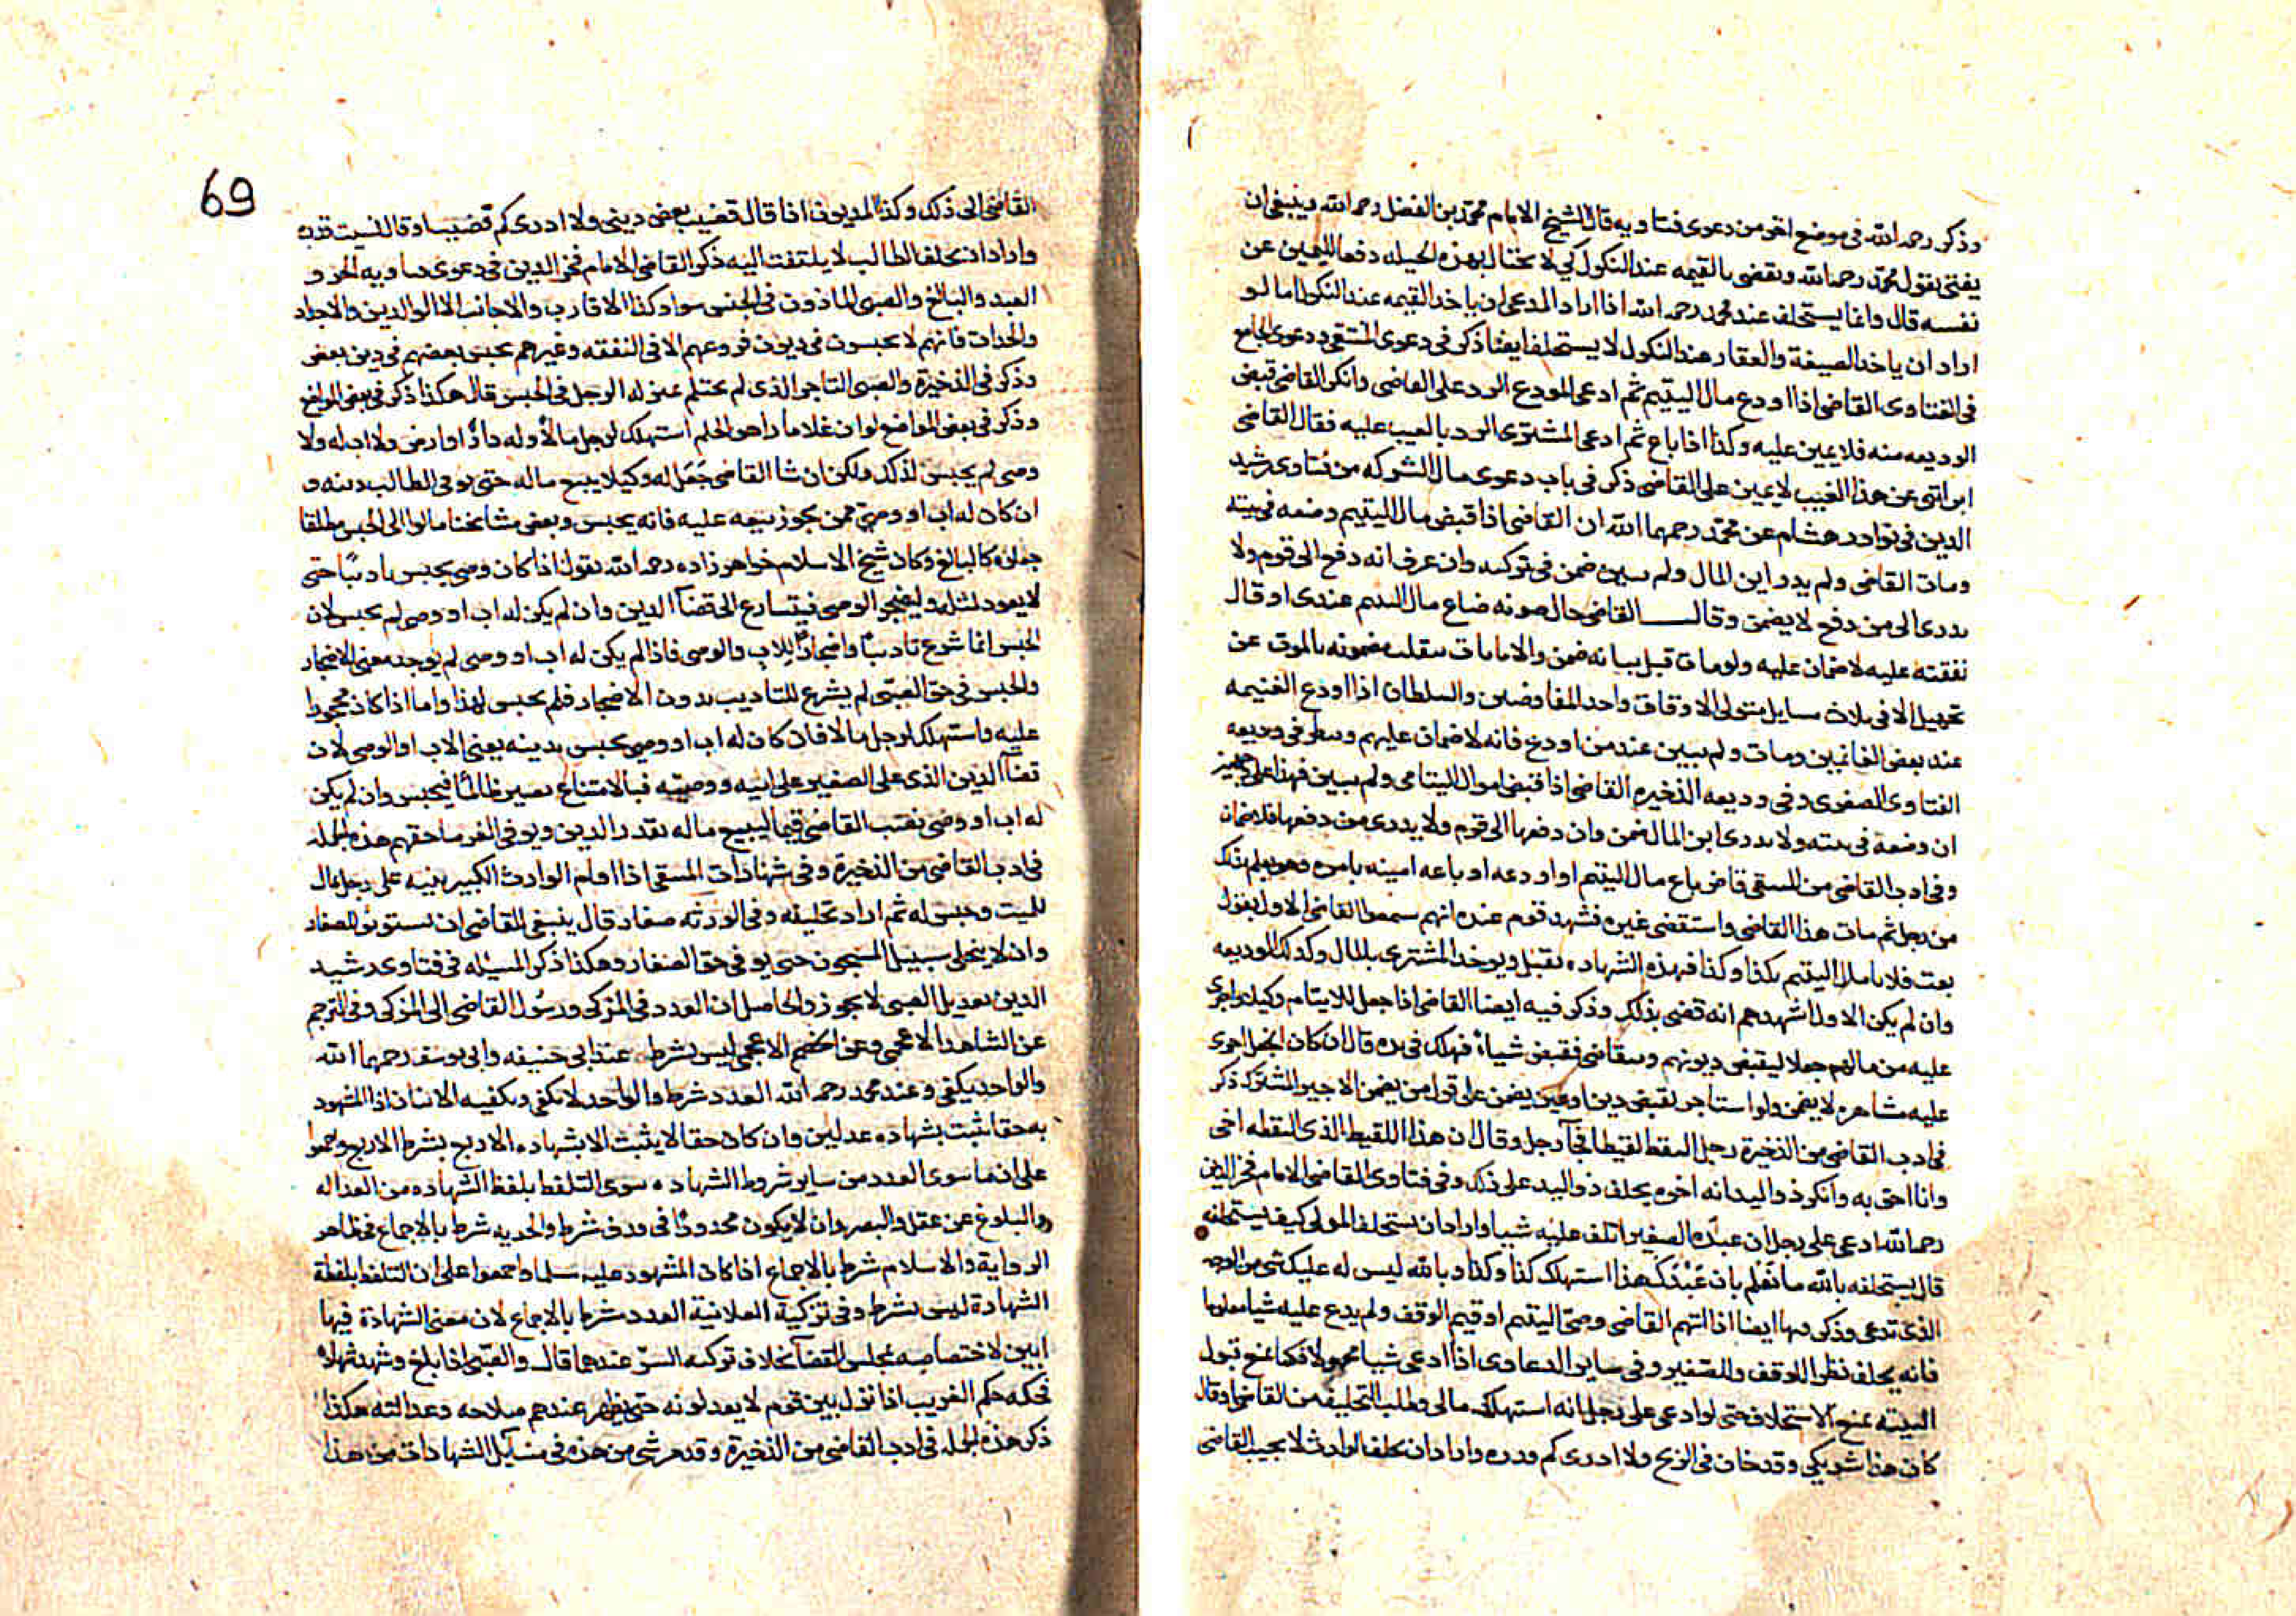 وذكر رحمه الله في موضع اخر من دعوى فتاويه قال الشيخ الامام محمد بن الفضل رحمه الله وينبغي ان
يفتى بقول محمد رحمه الله ويقضى بالقيمه عند النكول كي لا يحتال بهذه الحيله دفعا لليمين عن
نفسه قال وانما يستحلف عند محمد رحمه الله اذا اراد المدعى ان ياخذ القيمه عند النكول اما لو
اراد ان ياخذ الصيغة والعقار عند النكول لا يستحلف ايضا ذكر في دعوى المنتقى ودعوى الجامع
في الفتاوى القاضى اذا اودع مال اليتيم ثم ادعى المودع الرد على القاضى وانكر القاضى قبض
الوديعه منه فلا يمين عليه وكذا اذا باع ثم ادعى المشترى الرد بالعيب عليه فقال القاضى
ابراتنى عن هذا العيب لا يمين على القاضى ذكر في باب دعوى مال الشركه من فتاوى رشيد
الدين في نوادر هشام عن محمد رحمهما الله ان القاضى اذا قبض مال اليتيم وضعه في بيته
ومات القاضى ولم يدر اين المال ولم يبين ضمن في تركته وان عرف انه دفع الى قوم ولا
يدرى الى من دفع لا يضمن وقال القاضى حال حيوته ضاع مال اليتيم عندى او قال
نفقته عليه لا ضمان عليه ولو مات قبل بيانه ضمن والامانات تنقلب مضمونه بالموت عن
تجهيل الا في ثلاث مسايل متولى الاوقاف واحد المفاوضين والسلطان اذا اودع الغنيمه
عند بعض الغانمين ومات ولم يبين عند من اودع فانه لا ضمان عليهم وينظر في وديعه
الفتاوى الصغرى وفي وديعه الذخيره القاضى اذا قبض اموال اليتامى ولم يبين فهذا على وجهين
ان وضعه في بيته ولا يدرى اين المال ضمن وان دفعها الى قوم ولا يدرى من دفعها فلا ضمان
وفي ادب القاضى من المنتقى قاض باع مال اليتيم او اودعه او باعه امينه بامره وهو يعلم بذلك
من رجل ثم مات هذا القاضى واستقضى غيره فشهد قوم عنده انهم سمعوا القاضى الاول يقول
بعت فلانا مال اليتيم بكذا وكذا فهذه الشهاده تقبل ويوخذ المشترى بالمال وكذلك الوديعه
وان لم يكن الاول اشهدهم انه قضى بذلك وذكر فيه ايضا القاضى اذا جعل للايتام وكيلا واجرى
عليه من مالهم جعلا ليقبض ديونهم ويتقاضى فقبض شياء فهلك في يده قال ان كان الجعل اجرى
عليه مشاهره لا يضمن ولو استاجر لقبض دين او عين يضمن على قول من يضمن الاجير المشترك ذكر
في ادب القاضى من الذخيرة رجل التقط لقيطا فجآ رجل وقال ان هذا اللقيط الذى التقطه اخى
وانا احق به وانكر ذو اليد انه اخوه يحلف ذو اليد على ذلك وفي فتاوى القاضى الامام فخر الدين
رحمه الله ادعى على رجل ان عبده الصغير اتلف عليه شيا واراد ان يستحلف المولى كيف يستحلفه
قال يستحلفه بالله ما تعلم بان عبدك هذا استهلك كذا وكذا وبالله ليس له عليك شى من الوجه
الذى تدعى وذكر فيها ايضا اذا اتهم القاضى وصى اليتيم او قيم الوقف ولم يدع عليه شيا معلوما
فانه يحلف نظرا للوقف وللصغير وفي ساير الدعاوى اذا ادعى شيا مجهولا فكما يمنع قبول
البينة يمنع الاستحلاف حتى لو ادعى على رجل انه استهلك مالى وطلب التحليف من القاضى او قال
كان هذا شريكى وقد خان في الربح ولا ادرى كم قدره واراد ان يحلف الوارث لا يجيب القاضى
69
القاضى الى ذلك وكذا المديون اذا قال قضيت بعض دينى ولا ادرى كم قضيت او قال نسيت قدره
واراد ان يحلف الطالب لا يلتفت اليه ذكر القاضى الامام فخر الدين في دعوى فتاويه الحر و
العبد والبالغ والصبى الماذون في الحبس سواء وكذا الاقارب والاجانب الا الوالدين والاجداد
والجدات فانهم لا يحبسون في ديون فروعهم الا في النفقه وغيرهم يحبس بعضهم في دين بعض
وذكر في الذخيرة والصبى التاجر الذى لم يحتلم بمنزلة الرجل في الحبس قال هكذا ذكر في بعض المواضع
وذكر في بعض المواضع لو ان غلاما راهق الحلم استهلك لرجل مالا وله دار او ارض ولا اب له ولا
وصى لم يحبس لذلك ولكن ان شا القاضى جعل له وكيلا يبيع ماله حتى يوفى الطالب دينه و
ان كان له اب او وصى ممن يجوز بيعه عليه فانه يحبس وبعض مشايخنا مالوا الى الحبس مطلقا
جعلوه كالبالغ وكان شيخ الاسلام خواهر زاده رحمه الله يقول اذا كان وصى يحبس تاديبا حتى
لا يعود لمثله وليضجر الوصى فيتسارع الى قضآ الدين وان لم يكن له اب او وصى لم يحبس لان
الحبس انما شرع تاديبا واضجارا للاب والوصى فاذا لم يكن له اب او وصى لم يوجد معنى الاضجار
والحبس في حق الصبى لم يشرع للتاديب بدون الاضجار فلم يحبس لهذا واما اذا كان محجورا
عليه واستهلك لرجل مالا فان كان له اب او وصى يحبس بدينه يعنى الاب او الوصى لان
قضآ الدين الذى على الصغير على ابيه ووصيه فبالامتناع يصير ظالما فيحبس وان لم يكن
له اب او وصى نصب القاضى قيما ليبيع ماله بقدر الدين ويوفى الغرما حقهم هذه الجمله
في ادب القاضى من الذخيرة وفي شهادات المنتقى اذا اقام الوارث الكبير بينه على رجل بمال
للميت وحبس له ثم اراد تخليته وفي الورثه صغار قال ينبغى للقاضى ان يستوثق للصغار
وان لا يخلى سبيل المسجون حتى يوفى حق الصغار وهكذا ذكر المسيله في فتاوى رشيد
الدين تعديل الصبى لا يجوز والحاصل ان العدد في المزكى ورسول القاضى الى المزكى وفي الترجم
عن الشاهد الاعجمى وعن الخصم الاعجمى ليس بشرط عند ابى حنيفه وابى يوسف رحمهما الله
والواحد يكفى وعند محمد رحمه الله العدد شرط والواحد لا يكفى ويكفيه الاثنان اذا المشهود
به حقا يثبت بشهاده عدلين وان كان حقا لا يثبت الا بشهاده الاربع يشرط الاربع واجمعوا
على ان ما سوى العدد من ساير شروط الشهاده سوى التلفظ بلفظ الشهاده من العداله
والبلوغ عن عقل والبصر وان لا يكون محدودا في قذف شرط والحريه شرط بالاجماع في ظاهر
الرواية والاسلام شرط بالاجماع اذا كان المشهود عليه مسلما واجمعوا على ان التلفظ بلفظة
الشهادة ليس بشرط وفي تزكية العلانية العدد شرط بالاجماع لان معنى الشهادة فيها
ابين لاختصاصه بمجلس القضآ بخلاف تزكيه السر عندهما قال والصبى اذا بلغ وشهد شهاده
فحكمه حكم الغريب اذا نزل بين قوم لا يعدلونه حتى يظهر عندهم صلاحه وعدالته هكذا
ذكر هذه الجمله في ادب القاضى من الذخيرة وقد مر شى من هذه في مسآيل الشهادات من هذا